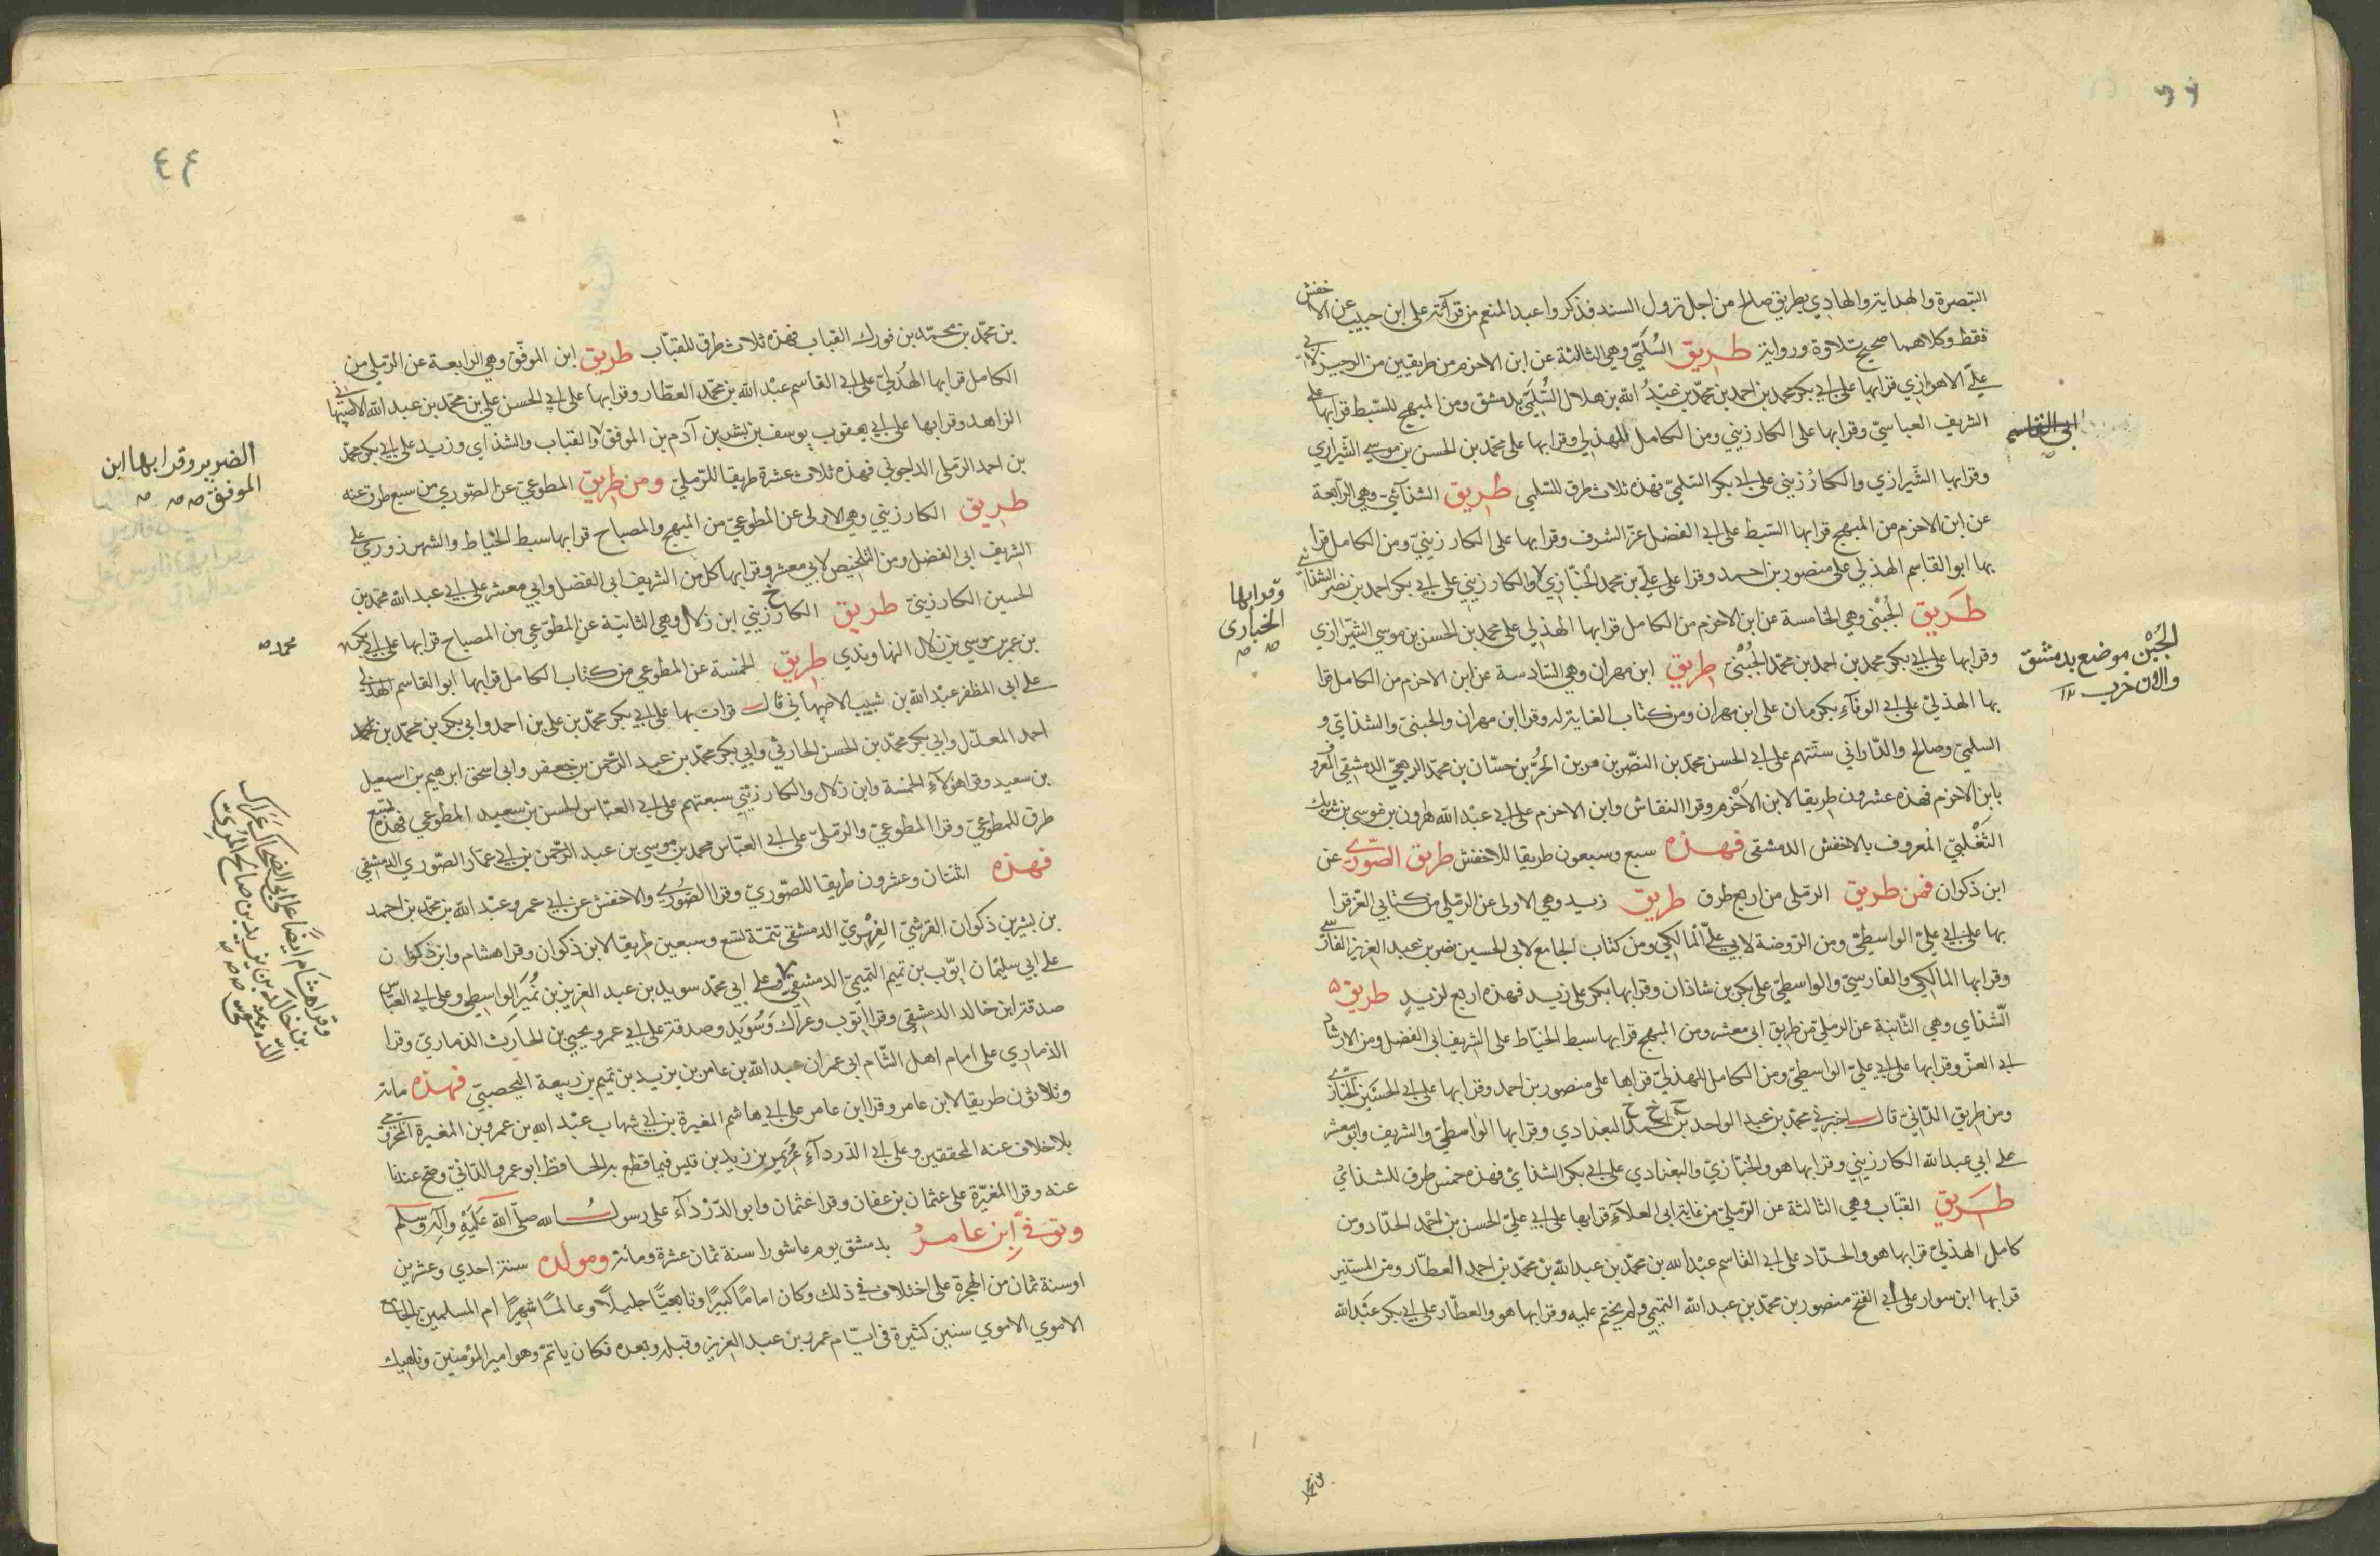 التبصرة والهداية والهادي بطريق صالح من اجل نزول السند فذكروا عبد المنعم من قرآءته على ابن حبيب عن الاخفش
فقط وكلاهما صحيح تلاوة ورواية طريق السُلَمي وهي الثالثة عن ابن الاخرم من طريقين من الوجيز لابي
علي الاهوازي قرا بها على ابي بكر محمد بن احمد بن محمد بن عبد الله بن هلال السُّلَمي بدمشق ومن المبهج للسبط قرا بها على
الشريف العباسي وقرا بها على الكارزيني ومن الكامل للهذلي وقرا بها على محمد بن الحسن بن موسى الشيرازي
وقرا بها الشيرازي والكارزيني على ابي بكر السلمي فهذه ثلاث طرق للسلمي طريق الشذآئي وهي الرابعة
عن ابن الاخرم من المبهج قرا بها السبط على ابي الفضل عز الشرف وقرا بها على الكارزيني ومن الكامل قرا
بها ابو القاسم الهذلي على منصور بن احمد وقرا على علي بن محمد الخبازي والكارزيني على ابي بكر احمد بن نصر الشذآئي
طريق الجُبْني وهي الخامسة عن ابن الاخرم من الكامل قرا بها الهذلي على محمد بن الحسن بن موسى الشيرازي
وقرا بها على ابي بكر محمد بن احمد بن محمد الجُبْني طريق ابن مهران وهي السادسة عن ابن الاخرم من الكامل قرا
بها الهذلي على ابي الوفآء بكرمان على ابن مهران ومن كتاب الغاية له وقرا ابن مهران والجبني والشذائي و
السلمي وصالح والداراني ستتهم على ابي الحسن محمد بن النضر بن مر بن الحُرّ بن حسان بن محمد الربعي الدمشقي المعروف
بابن الاخرم فهذه عشرون طريقا لابن الاخرم وقرا النقاش وابن الاخرم على ابي عبد الله هرون بن موسى بن شريك
التَغْلبي المعروف بالاخفش الدمشقي فهذه سبع وسبعون طريقا للاخفش طريق الصّوري عن
ابن ذكوان فمن طريق الرملي من اربع طرق طريق زيد وهي الاولى عن الرملي من كتابي العز قرا
بها على ابي علي الواسطي ومن الروضة لابي علي المالكي ومن كتاب الجامع لابي الحسين نصر بن عبد العزيز الفارسي
وقرا بها المالكي والفارسي والواسطي على بكر بن شاذان وقرا بها بكر على زيد فهذه اربع لزيد طريق
الشذاي وهي الثانية عن الرملي من طريق ابي معشر ومن المبهج قرا بها سبط الخياط على الشريف ابي الفضل ومن الارشاد
لابي العز وقرا بها على ابي علي الواسطي ومن الكامل للهذلي قرابها على منصور بن احمد وقرا بها على ابي الحسين الخبازي
ومن طريق الداني قال اخبرني محمد بن عبد الواحد بن احمد البغدادي وقرا بها الواسطي والشريف وابو معشر
على ابي عبد الله الكارزيني وقرا بها هو والخبازي والبغدادي على ابي بكر الشذاي فهذه خمس طرق للشذائي
طريق القبّاب وهي الثالثة عن الرملي من غاية ابي العلآء قرا بها على ابي علي الحسن بن احمد الحداد ومن
كامل الهذلي قرا بها هو والحداد على ابي القاسم عبد الله بن محمد بن عبد الله بن محمد بن احمد العطار ومن المستنير
قرا بها ابن سوار على ابي الفتح منصور بن محمد بن عبد الله التميمي ولم يختم عليه وقرا بها هو والعطار على ابي بكر عبد الله
ابي القاسم
الجُبْن موضع بدمشق
والان خرب
وقرا بها
الخبازي
بن محمد
٤٤
بن محمد بن محمد بن فورك القباب فهذه ثلاث طرق للقبّاب طريق ابن الموفق وهي الرابعة عن الرملي من
الكامل قرا بها الهُذلي على ابي القاسم عبد الله بن محمد العطار وقرا بها على ابي الحسن علي بن محمد بن عبد الله الاصبهاني
الزاهد وقرا بها على ابي يعقوب يوسف بن بشر بن آدم بن الموفق والقباب والشذاي وزيد على ابي بكر محمد
بن احمد الرملي الداجوني فهذه ثلاث عشرة طريقا للرملي ومن طريق المطوعي عن الصوري من سبع طرق عنه
طريق الكارزيني وهي الاولى عن المطوعي من المبهج والمصباح قرا بها سبط الخياط والشهرزوري على
الشريف ابي الفضل ومن التلخيص لابي معشر وقرا بها كل من الشريف ابي الفضل وابي معشر على ابي عبد الله محمد بن
الحسين الكارزيني طريق الكارزيني ابن زلال وهي الثانية عن المطوعي من المصباح قرا بها على ابي بكر
بن عمر بن موسى بن زلال النهاوندي طريق الخمسة عن المطوعي من كتاب الكامل قرا بها ابو القاسم الهذلي
على ابي المظفر عبد الله بن شبيب الاصبهاني قال قرات بها على ابي بكر محمد بن علي بن احمد وابي بكر بن محمد بن
احمد المعدل وابي بكر محمد بن الحسن الحارثي وابي بكر محمد بن عبد الرحمن بن جعفر وابي اسحق ابرهيم بن اسمعيل
بن سعيد وقرا هؤلآء الخمسة وابن زلال والكارزيني سبعتهم على ابي العباس الحسن بن سعيد المطوعي فهذه سبع
طرق للمطوعي وقرا المطوعي والرملي على ابي العباس محمد بن موسى بن عبد الرحمن بن ابي عمار الصوري الدمشقي
فهذه اثنتان وعشرون طريقا للصوري وقرا الصُّوري والاخفش عن ابي عمرو عبد الله بن محمد بن احمد
بن بشير بن ذكوان القرشي الفِهْري الدمشقي تتمة تسع وسبعين طريقا لابن ذكوان وقرا هشام وابن ذكوان
على ابي سليمان ايوب بن تميم التميمي الدمشقي وعلى ابي محمد سويد بن عبد العزيز بن نُمَير الواسطي وعلى ابي العباس
صدقة ابن خالد الدمشقي وقرا ايوب وعراك وسُوَيد وصدقة على ابي عمرو يحيى بن الحارث الذماري وقرا
الذماري على امام اهل الشام ابي عمران عبد الله بن عامر بن يزيد بن تميم بن ربيعة اليحصبي فهذه مائة
وثلاثون طريقا لابن عامر وقرا ابن عامر على ابي هاشم المغيرة بن ابي شهاب عبد الله بن عمرو بن المغيرة المخزومي
بلا خلاف عنه المحققين وعلى ابي الدردآء عُوَيمر بن زيد بن قيس فيما قطع به الحافظ ابو عمرو الداني وصح عندنا
عنه وقرا المغيرة على عثمان بن عفان وقرا عثمان وابو الدّرْدَآء على رسول الله صلى الله عليه وآله وسلم
وتوفي ابن عامر بدمشق يوم عاشورا سنة ثمان عشرة ومائة ومولده سنة احدي وعشرين
او سنة ثمان من الهجرة على اختلاف في ذلك وكان اماما كبيرا وتابعيّا جليلا وعالما شهيرا ام المسلمين بالجامع
الاموي الاموي سنين كثيرة في ايام عمر بن عبد العزيز وقبله وبعده فكان ياتم وهو امير المؤمنين وناهيك
الضرير وقرا بها ابن
الموفق
محمد
وقرا هشام ايضًا على ابي الضحاك عراك
بن خالد بن يزيد بن صالح المُري
الدمشقي